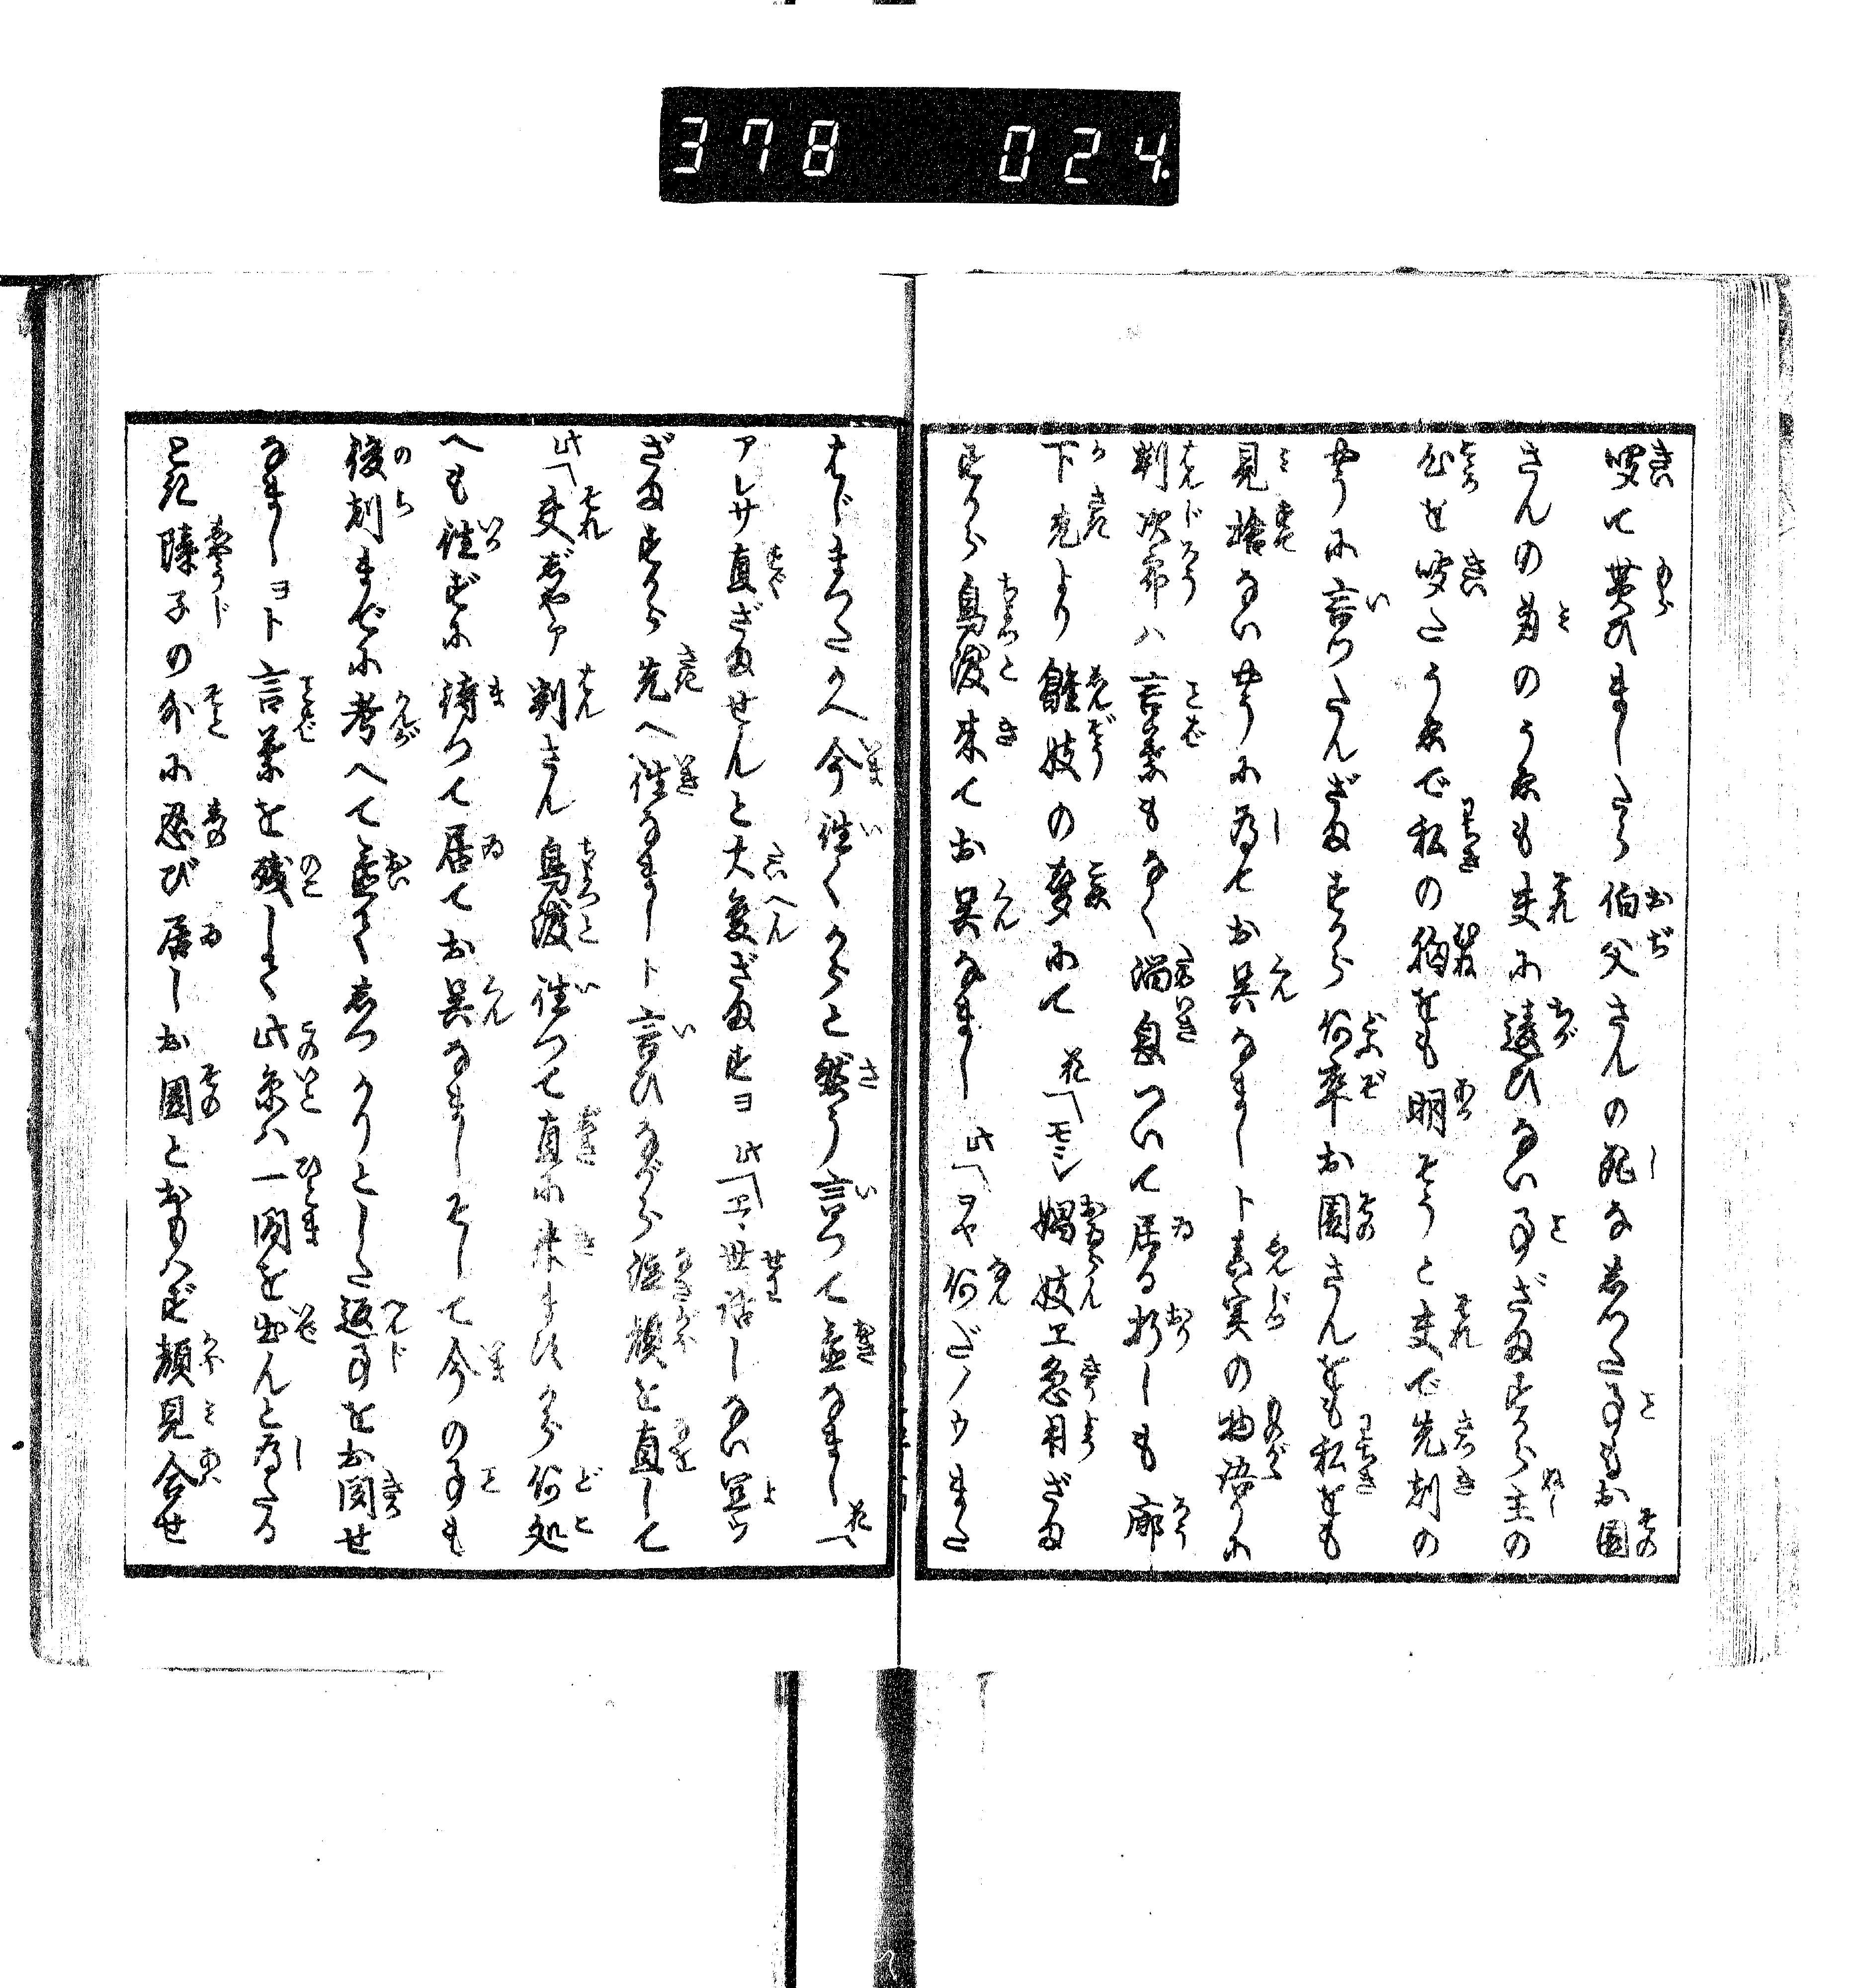 378 024.
吱て貰ひましたら伯父さんの死なしつた事もお園
さんの身のうへも夫に違ひない事ざますから主の
心を吱たうへで私の胸をも明そうと夫で先刻の
やうに言つたんざますから何卒お園さんをも私をも
見捨ないやうに為てお呉なましト真実の物語りに
判次郎ハ言葉もなく溜息ついて居る折しも廊
下先より雛妓の声にて 花「モシ娼妓エ急用ざま
すから鳥渡来てお呉なまし 此「ヲヤ何ざノウまた
はじまつたかへ今往くからと然う言つて置なまし 花「
アレサ直ざませんと大変ざますヨ 此「エヽ世話しない罡ウ
ざますから先へ往なましト言ひながら泣顔を直して
此「夫ぢやア判さん鳥渡往つて直に来ますから何処
へも往ずに待つて居てお呉なましそして今の事も
後刻までに考へて置てしつかりとした返事をお聞せ
なましヨト言葉を残して此糸ハ一間を出んと為たる
とき障子の外に忍び居しお園とおもハず顔見合せ